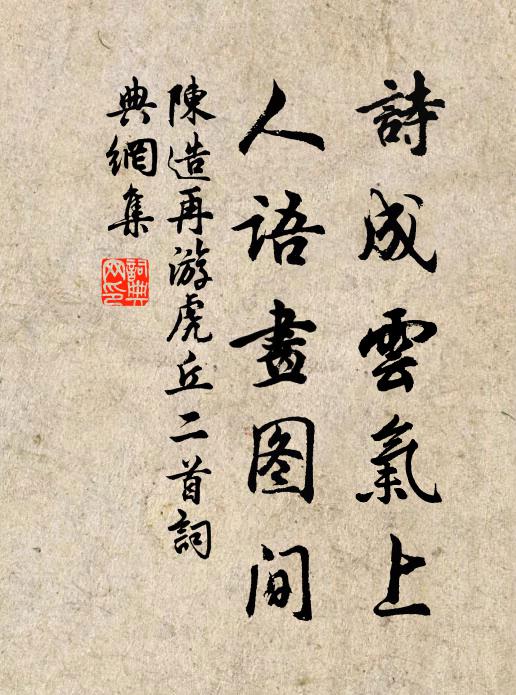 詩成雲氣上
人語畫图間
陳造再游虎丘二首詞
典網集
詞典网印